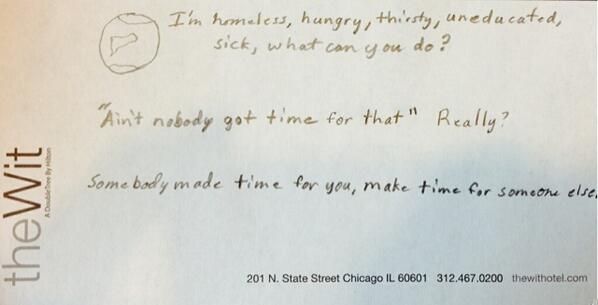 I'm homeless, hungry, thirsty, uneducated,
sick, what can you do?
"Ain't nobody got time for that" Really?
Somebody made time for you, make time for someone else.
theWit
A DoubleTree By Hilton
201 N. State Street Chicago IL 60601 312.467.0200 thewithotel.com